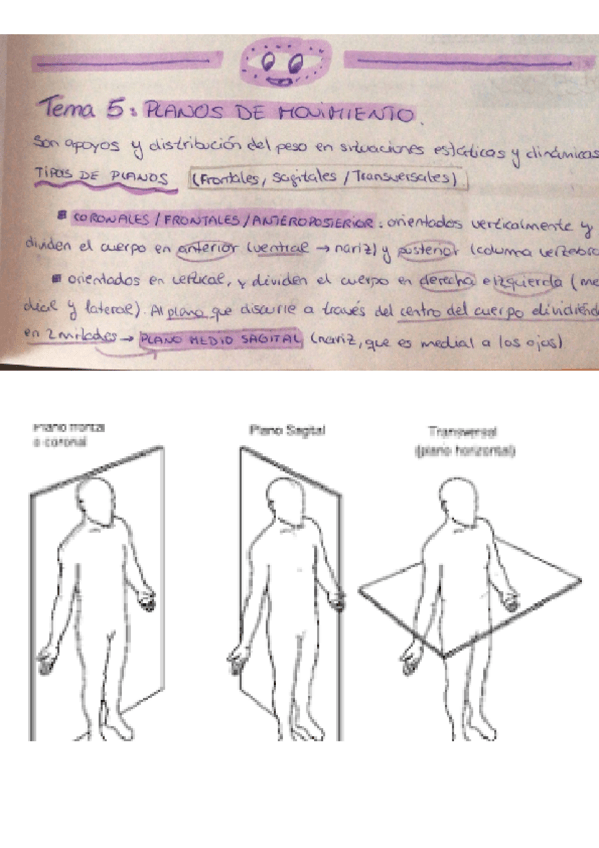 Tema 5: PLANOS DE MOVIMIENTO.
Son apoyos y distribución del peso en situaciones estáticas y dinámicas
TIPOS DE PLANOS (Frontales, Sagitales / Transversales)
CORONALES / FRONTALES / ANTEROPOSTERIOR: orientados verticalmente y
dividen el cuerpo en anterior (ventral → nariz) y posterior (columna vertebra
orientados en vertical, y dividen el cuerpo en derecha e izquierda (me
dial y lateral). Al plano que discurre a través del centro del cuerpo dividiéndo
en 2 mitades → PLANO MEDIO SAGITAL (nariz, que es medial a los ojos)
Plano frontal
o coronal
Plano Sagital
Transversal
(plano horizontal)